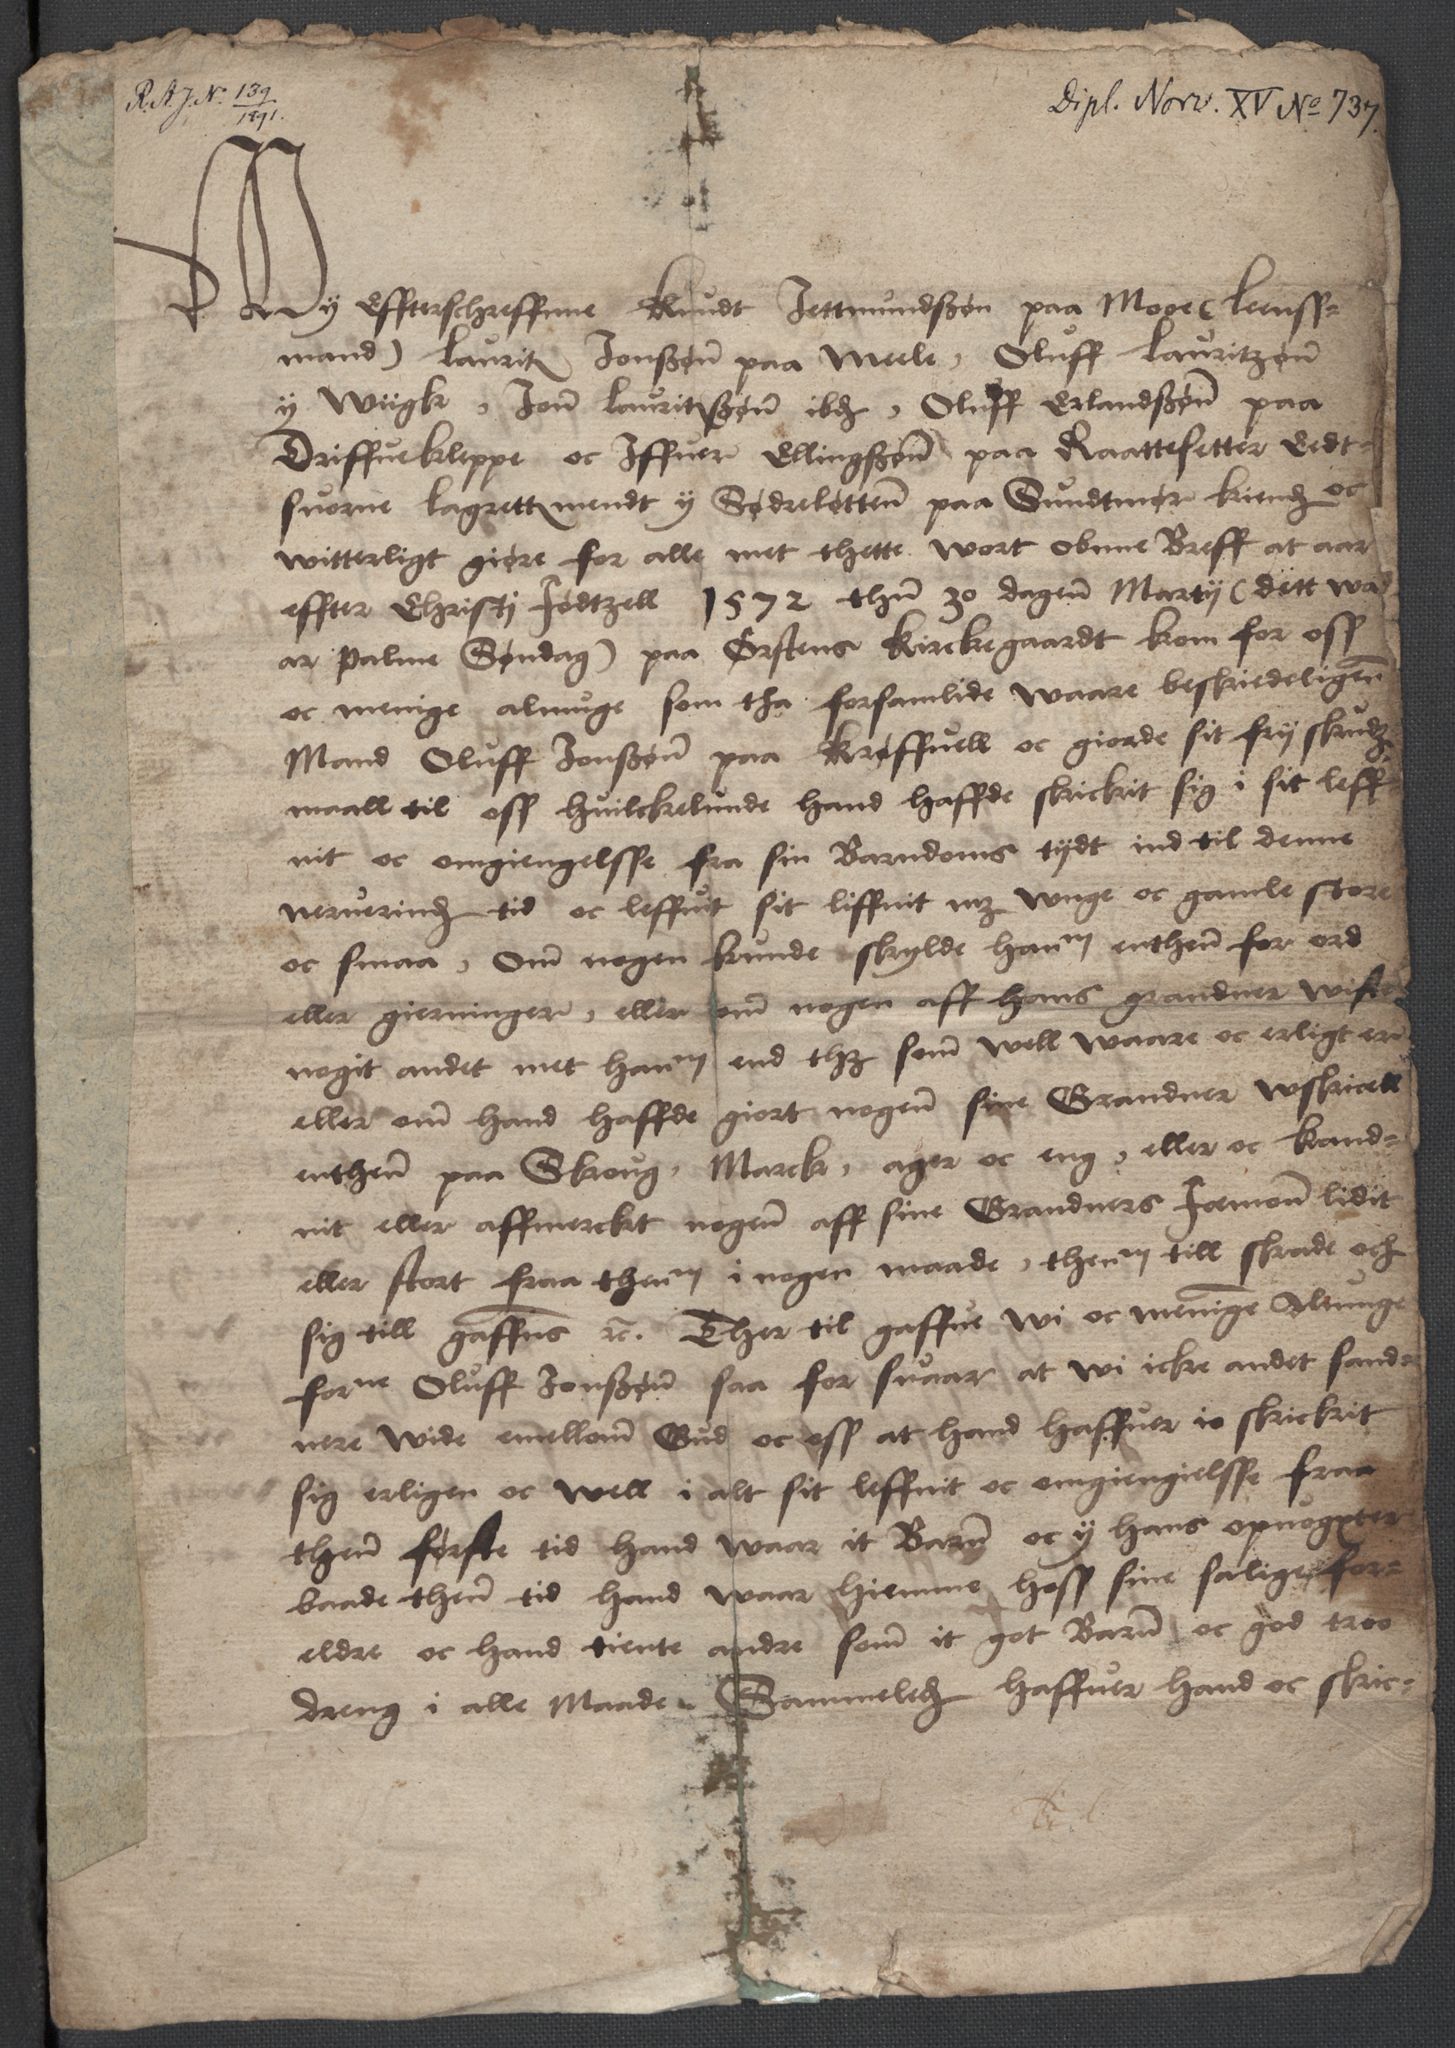 R.A.J.No. 139/1891.
Dipl. Norv. XV No 737.
Wy Effterschreffnne Knudt Jettmundßøn paa Mooe (Leenss=
mand) Lauritz Jonßøn paa Meele, Oluff Lauritzøn
y Wiigk, Jon Lauritzßøn ibd, Oluff Erlandßøn paa
Driffuekleppe oc Iffuer Ellingßøn paa Raattesetter Eedt=
suorne lagrettzmendt y Sødreletten paa Sundtmør kiendz oc
witterligt giøre for alle met thette wort obnne Breff at aar
effter Christj Fødtzell 1572 thn 30 dagen Martij (dett wa
ar Palme Søndag) paa Ørstens Kirckegaardt kom for oss
oc menige almuge som tha forsamlide waare beskiedeligen
Mand Oluff Jonßøn paa Krøffuell oc giorde sit frij skudz
maall til oss huilckelunde hand haffde skickit sig i sit leff=
nit oc omgiengelsse fra sin Barndoms tijdt ind til denne
neruerindz tid oc leffuit sit liffnit mz wnge oc gamle store
oc smaa, Om nogen kunde skylde hanm enthen for ord
eller gierninger, eller om nogen aff hans grandner wiste
nogit andet met hanm end thz som well waare oc erligt er
eller om hand haffde giort nogen sine Grandner wskicell
enthen paa Skoug, Marck, ager oc eng, eller oc kand=
nit eller affmerckt nogen aff sine Grandners Fæmon lidit
eller stort fraa thenm i nogen maade, thenm till skrade och
sig till gaffns rc. Ther til gaffue wi oc menige Almuge
forne Oluff Jonßøn saa for suaar at wi icke andet sand=
nere wide emellom Gud oc oss at hand haffuer io skickit
sig erligen oc well i alt sit leffnit oc omgiengielsse fraa
then første tid hand waar it Barn oc y hans opuogxter
baade then tid hand waar hiemme hoss sine salige for=
eldre oc hand tiente andre som it got Barn oc god troo
dreng i alle Maade. Sammeledz haffuer hand oc skic=